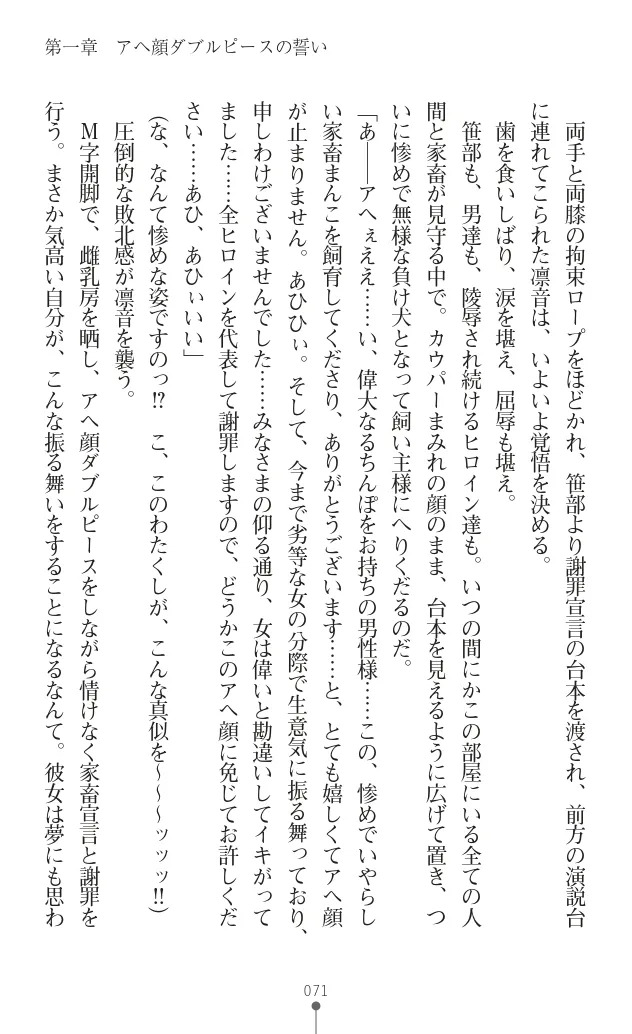 第一章　アヘ顔ダブルピースの誓い
　両手と両膝の拘束ロープをほどかれ、笹部より謝罪宣言の台本を渡され、前方の演説台
に連れてこられた凛音は、いよいよ覚悟を決める。
　歯を食いしばり、涙を堪え、屈辱も堪え。
　笹部も、男達も、陵辱され続けるヒロイン達も。いつの間にかこの部屋にいる全ての人
間と家畜が見守る中で。カウパーまみれの顔のまま、台本を見えるように広げて置き、つ
いに惨めで無様な負け犬となって飼い主様にへりくだるのだ。
「あ――アヘぇええ……い、偉大なるちんぽをお持ちの男性様……この、惨めでいやらし
い家畜まんこを飼育してくださり、ありがとうございます……と、とても嬉しくてアヘ顔
が止まりません。あひひぃ。そして、今まで劣等な女の分際で生意気に振る舞っており、
申しわけございませんでした……みなさまの仰る通り、女は偉いと勘違いしてイキがって
ました……全ヒロインを代表して謝罪しますので、どうかこのアヘ顔に免じてお許しくだ
さい……あひ、あひぃいい」
（な、なんて惨めな姿ですのっ!?　こ、このわたくしが、こんな真似を～～～ッッッ!!）
　圧倒的な敗北感が凛音を襲う。
　Ｍ字開脚で、雌乳房を晒し、アヘ顔ダブルピースをしながら情けなく家畜宣言と謝罪を
行う。まさか気高い自分が、こんな振る舞いをすることになるなんて。彼女は夢にも思わ
071